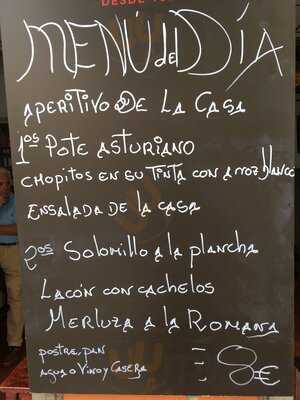 DESDE
MENÚ del DÍA
APERITIVO DE LA CASA
1os POTE ASTURIANO
CHOPITOS EN SU TINTA CON ARROZ blanco
ENSALADA DE LA CASA
2os Solomillo a la plancha
LACÓN CON CACHELOS
MERLUZA A LA ROMANA
POSTRE, PAN
AGUA O VINO Y CASERA
8€